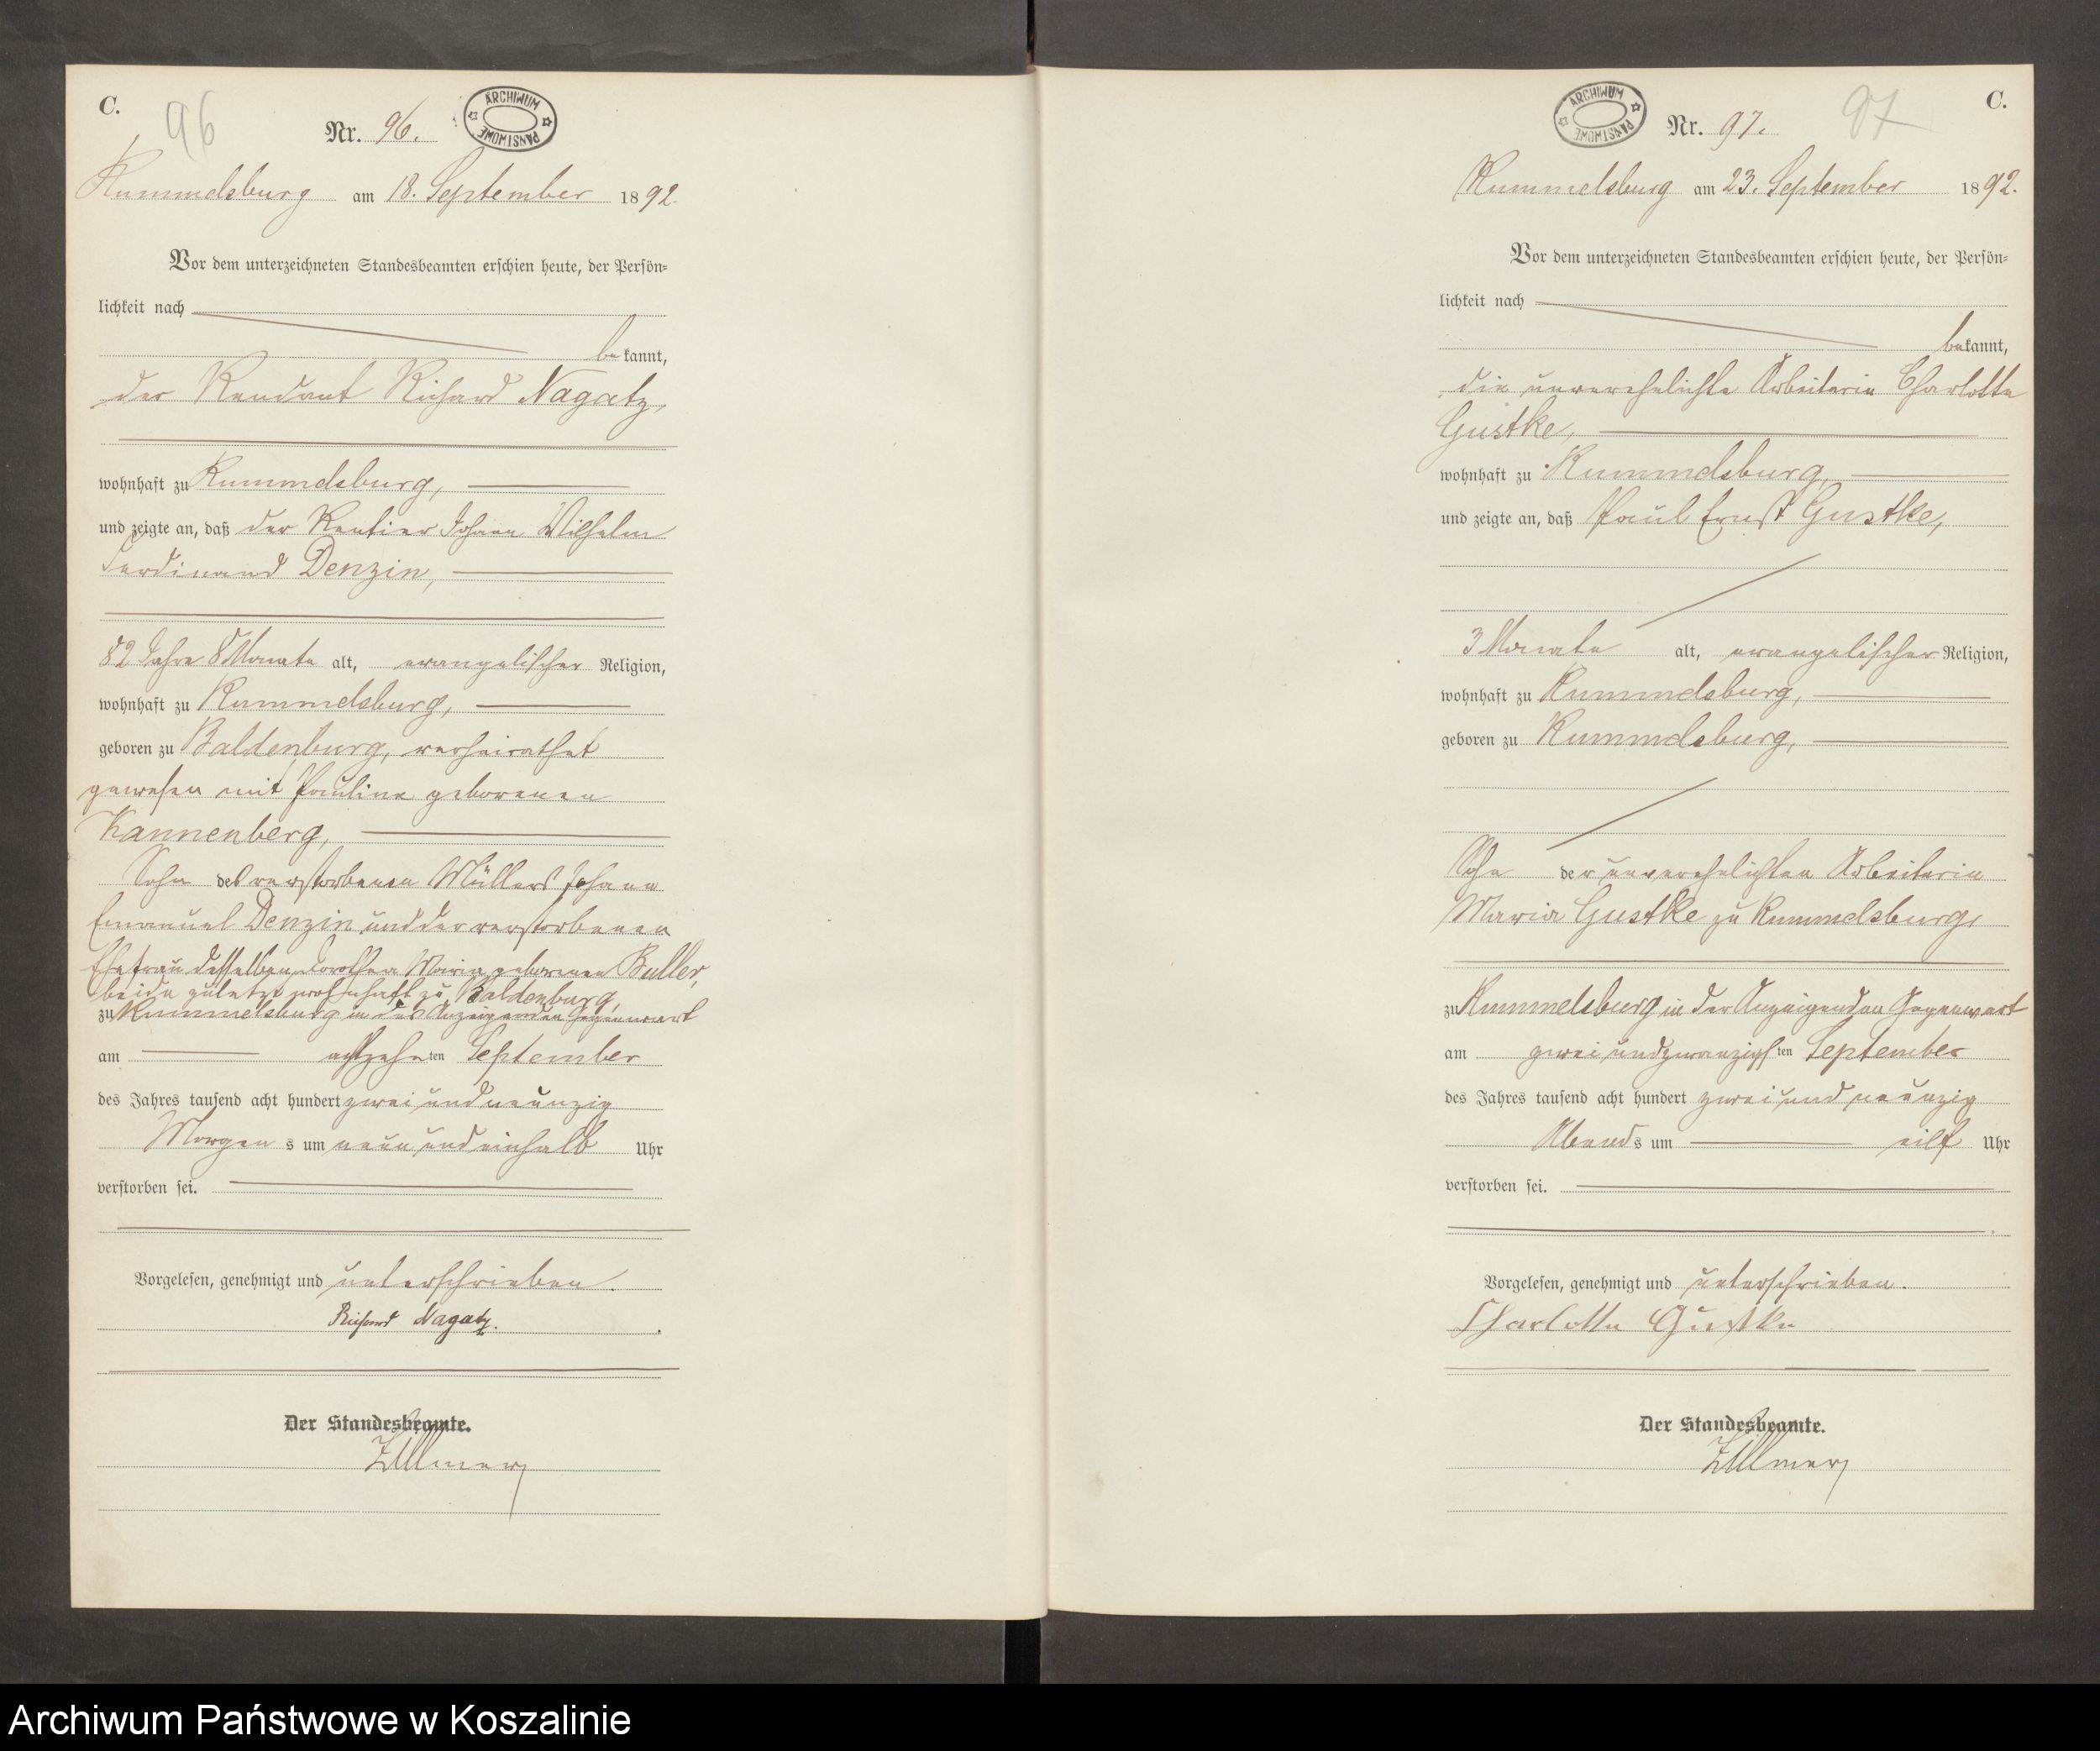 C.
96
Nr. 96.
ARCHIWUM PAŃSTWOWE
Rummelsburg am 18. September 1892.
Vor dem unterzeichneten Standesbeamten erschien heute, der Persön-
lichkeit nach
bekannt,
der Rendant Richard Nagatz,
wohnhaft zu Rummelsburg,
und zeigte an, daß der Rentier Johann Wilhelm
Ferdinand Denzin,
82 Jahre 8 Monate alt, evangelischer Religion,
wohnhaft zu Rummelsburg,
geboren zu Baldenburg, verheirathet
gewesen mit Pauline geborenen
Kannenberg,
Sohn des verstorbenen Müllers Johann
Emanuel Denzin und der verstorbenen
Ehefrau desselben Dorothea Maria geborenen Buller,
beide zuletzt wohnhaft zu Baldenburg,
zu Rummelsburg in des Anzeigenden Gegenwart
am achtzehnten September
des Jahres tausend acht hundert zwei und neunzig
Morgens um neun und einhalb Uhr
verstorben sei.
Vorgelesen, genehmigt und unterschrieben.
Richard Nagatz.
Der Standesbeamte.
Zillmer
C.
97
Nr. 97.
ARCHIWUM PAŃSTWOWE
Rummelsburg am 23. September 1892.
Vor dem unterzeichneten Standesbeamten erschien heute, der Persön-
lichkeit nach
bekannt,
die unverehelichte Arbeiterin Charlotte
Gustke,
wohnhaft zu Rummelsburg,
und zeigte an, daß Paul Ernst Gustke,
3 Monate alt, evangelischer Religion,
wohnhaft zu Rummelsburg,
geboren zu Rummelsburg,
Sohn der unverehelichten Arbeiterin
Maria Gustke zu Rummelsburg,
zu Rummelsburg in der Anzeigenden Gegenwart
am zwei und zwanzigsten September
des Jahres tausend acht hundert zwei und neunzig
Abends um eilf Uhr
verstorben sei.
Vorgelesen, genehmigt und unterschrieben.
Charlotte Gustke
Der Standesbeamte.
Zillmer
Archiwum Państwowe w Koszalinie